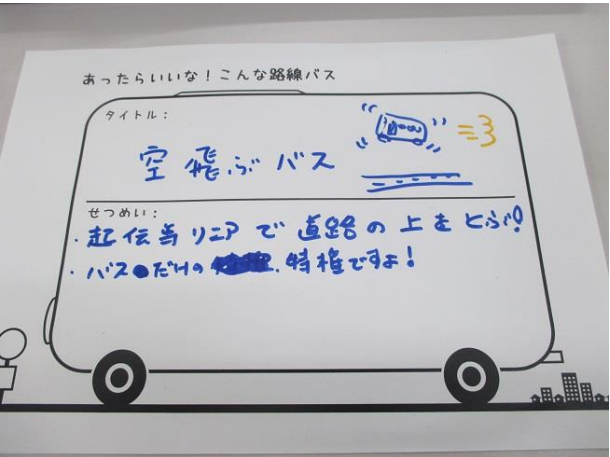 あったらいいな！こんな路線バス
タイトル：
空飛ぶバス
せつめい：
・起伝导リニアで道路の上をとぶ！
・バスだけの特権ですよ！